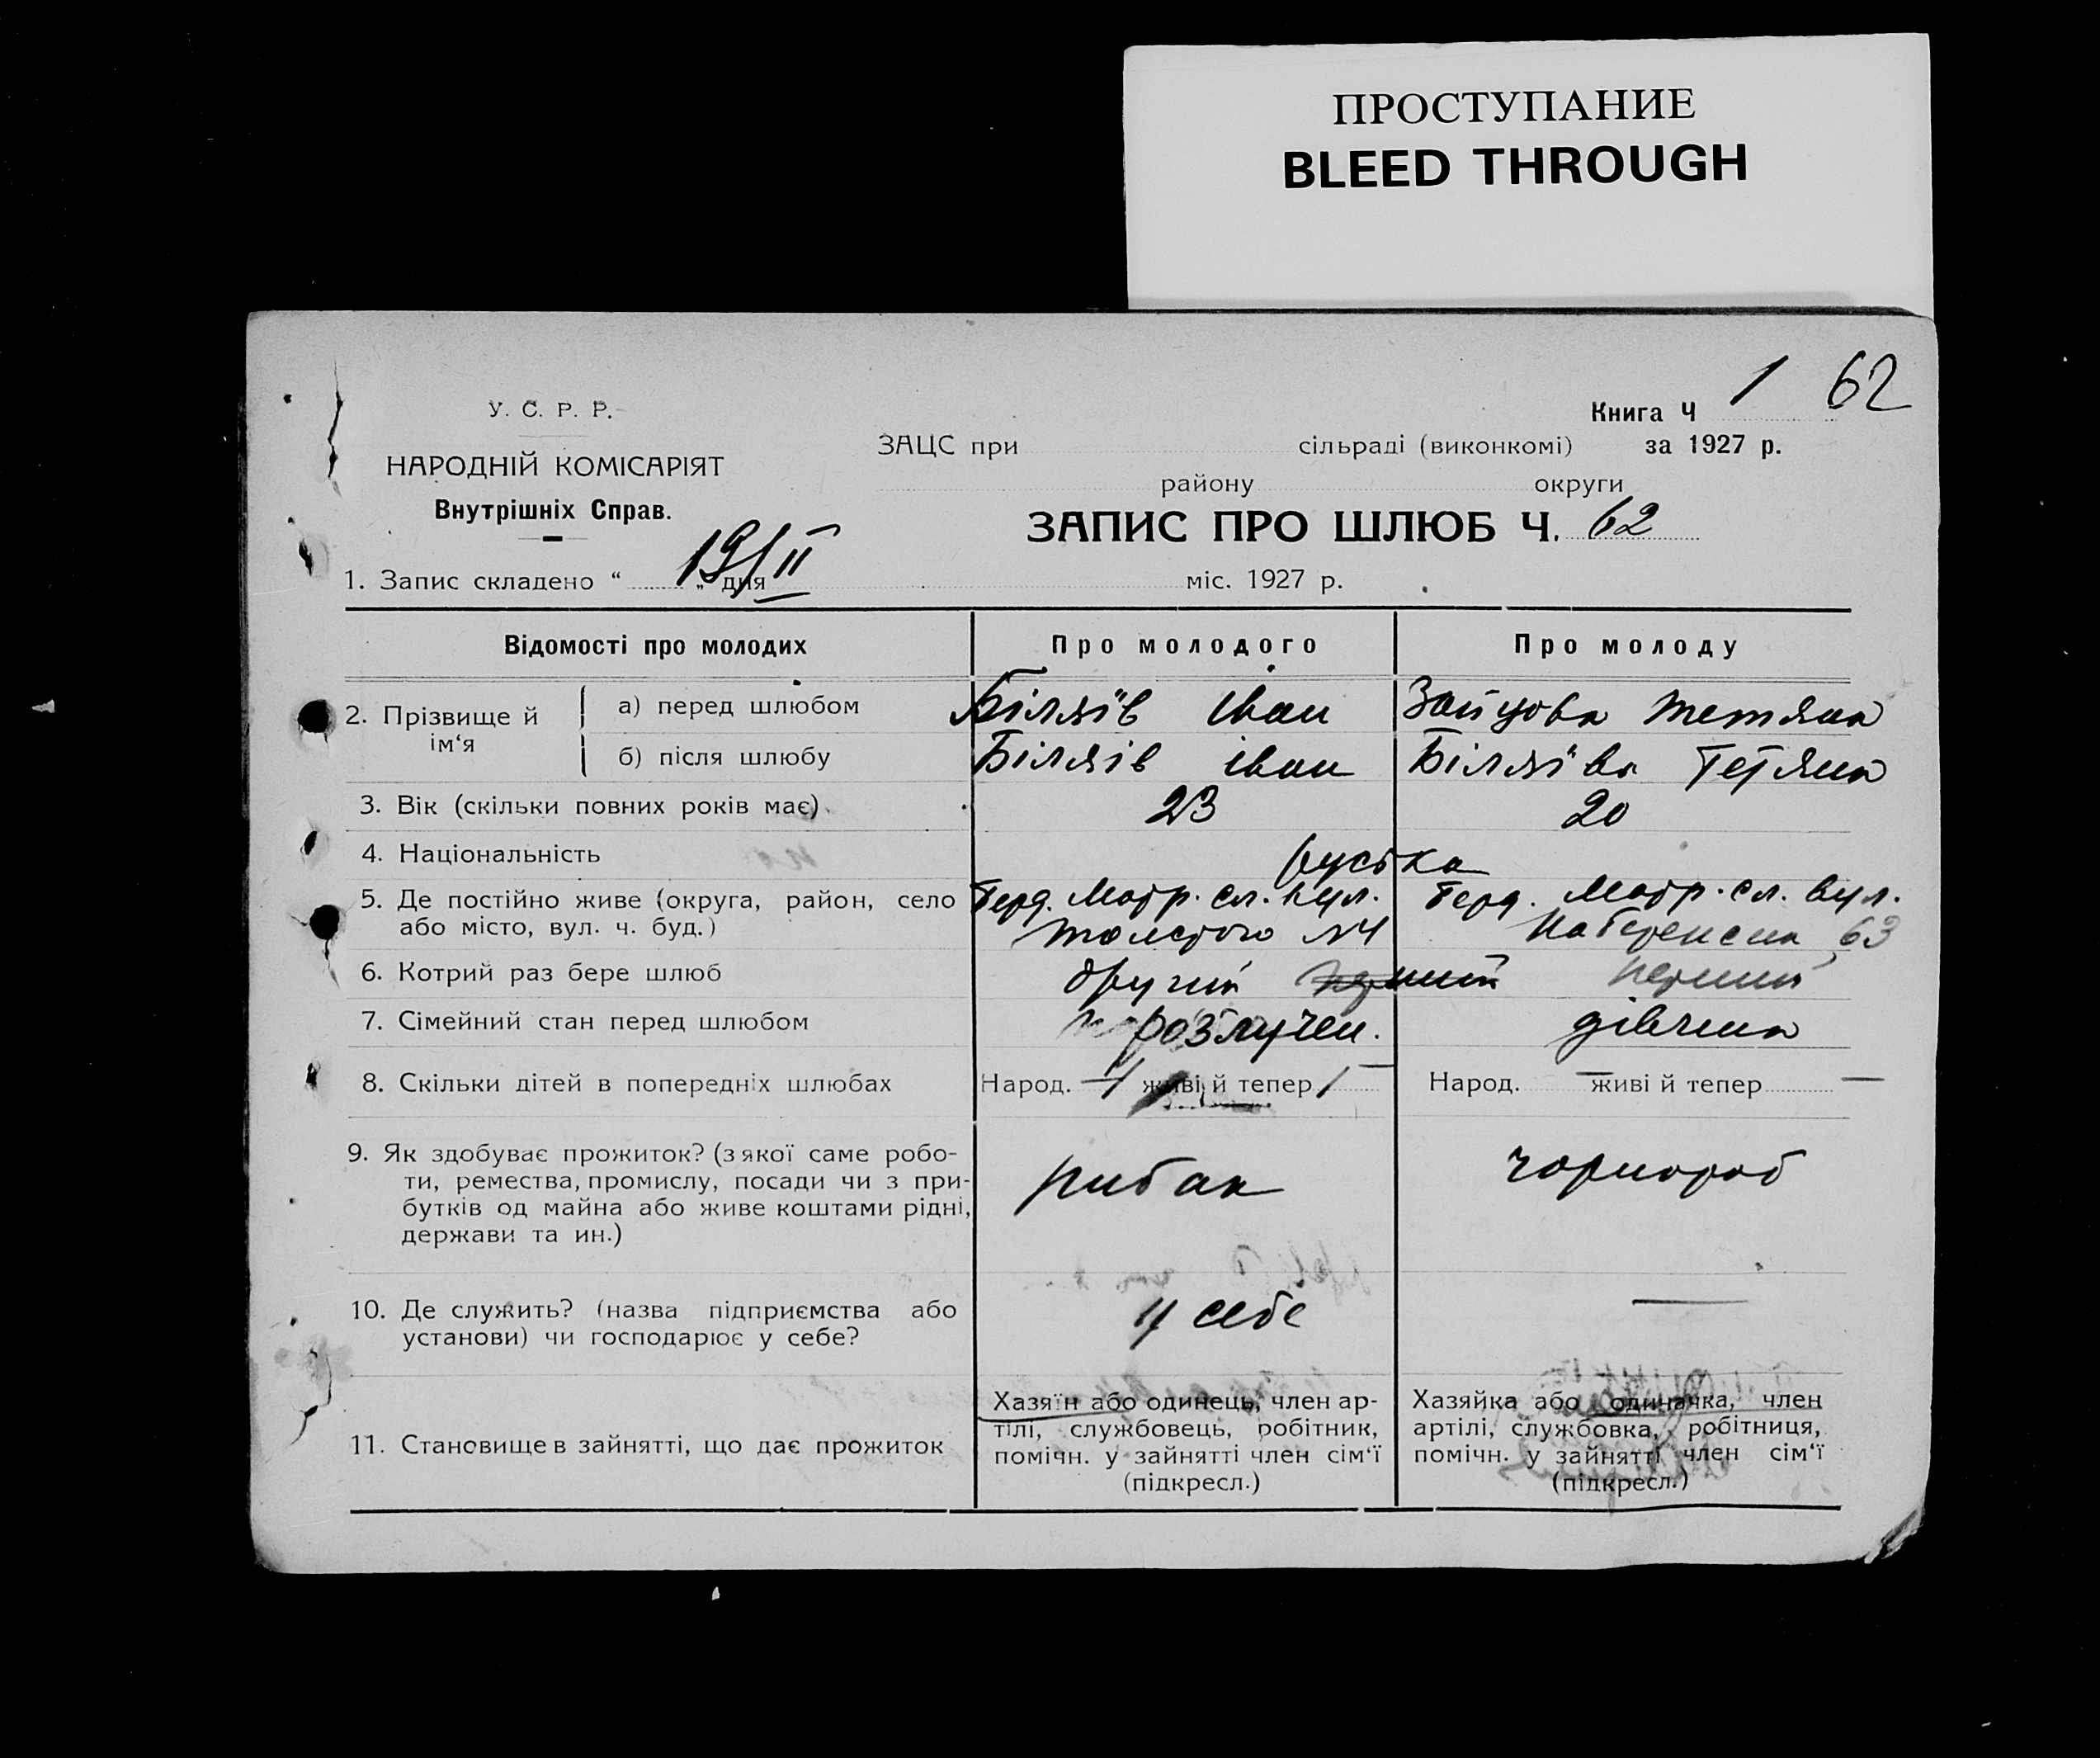 ПРОСТУПАНИЕ
BLEED THROUGH
1 62
У. С. Р. Р.
Книга Ч
ЗАЦС при сільраді (виконкомі) за 1927 р.
НАРОДНІЙ КОМІСАРІЯТ
району округи
Внутрішніх Справ.
ЗАПИС ПРО ШЛЮБ Ч. 62
1. Запис складено “ „ дня 19/II міс. 1927 р.
Відомості про молодих Про молодого Про молоду
2. Прізвище й ім‘я
а) перед шлюбом Біляїв Іван Зайцова Тетяна
б) після шлюбу Біляїв Іван Біляїва Тетяна
3. Вік (скільки повних років має) 23 20
4. Національність руська
5. Де постійно живе (округа, район, село Берд. Матр. сл. вул. Берд. Матр. сл. вул.
або місто, вул. ч. буд.) Толстого №4 Набережна 63
6. Котрий раз бере шлюб другий перший
7. Сімейний стан перед шлюбом розлучен. дівчина
8. Скільки дітей в попередніх шлюбах Народ. 1 живі й тепер 1 Народ. — живі й тепер —
9. Як здобуває прожиток? (з якої саме робо-
ти, ремества, промислу, посади чи з при- рибак чорнороб
бутків од майна або живе коштами рідні,
держави та ин.)
10. Де служить? (назва підприємства або у себе —
установи) чи господарює у себе?
11. Становище в зайнятті, що дає прожиток
Хазяїн або одинець, член ар-
тілі, службовець, робітник,
помічн. у зайнятті член сім‘ї
(підкресл.)
Хазяйка або одиначка, член
артілі, службовка, робітниця,
помічн. у зайнятті член сім‘ї
(підкресл.)